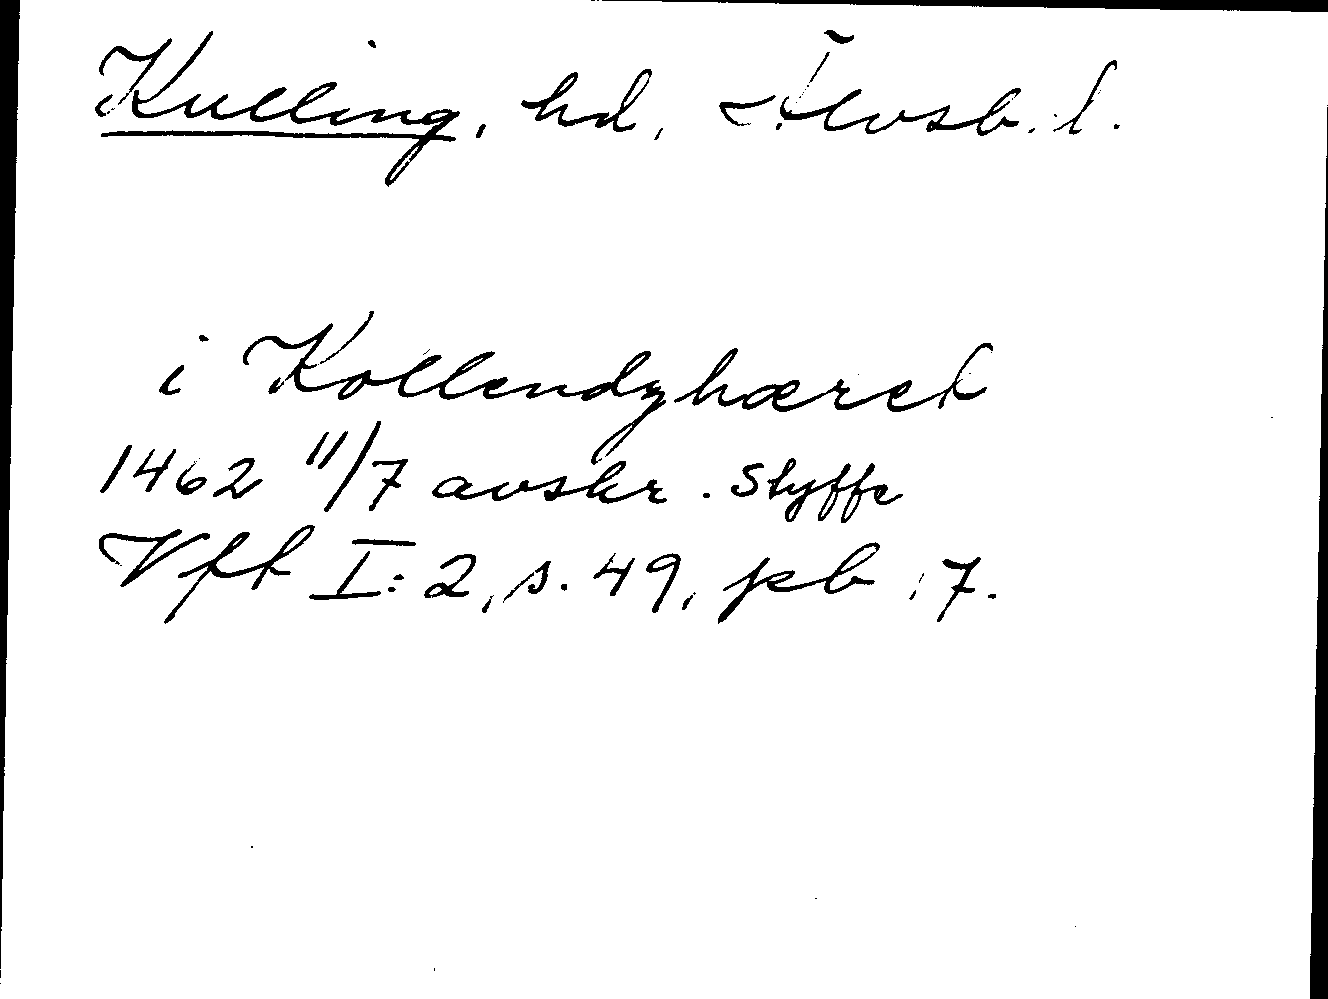 Kulling, hd, Älvsb. l.
i Kollendzhæret
1462 11/7 avskr. Styffe
Vft I:2, s. 49, pb 7.